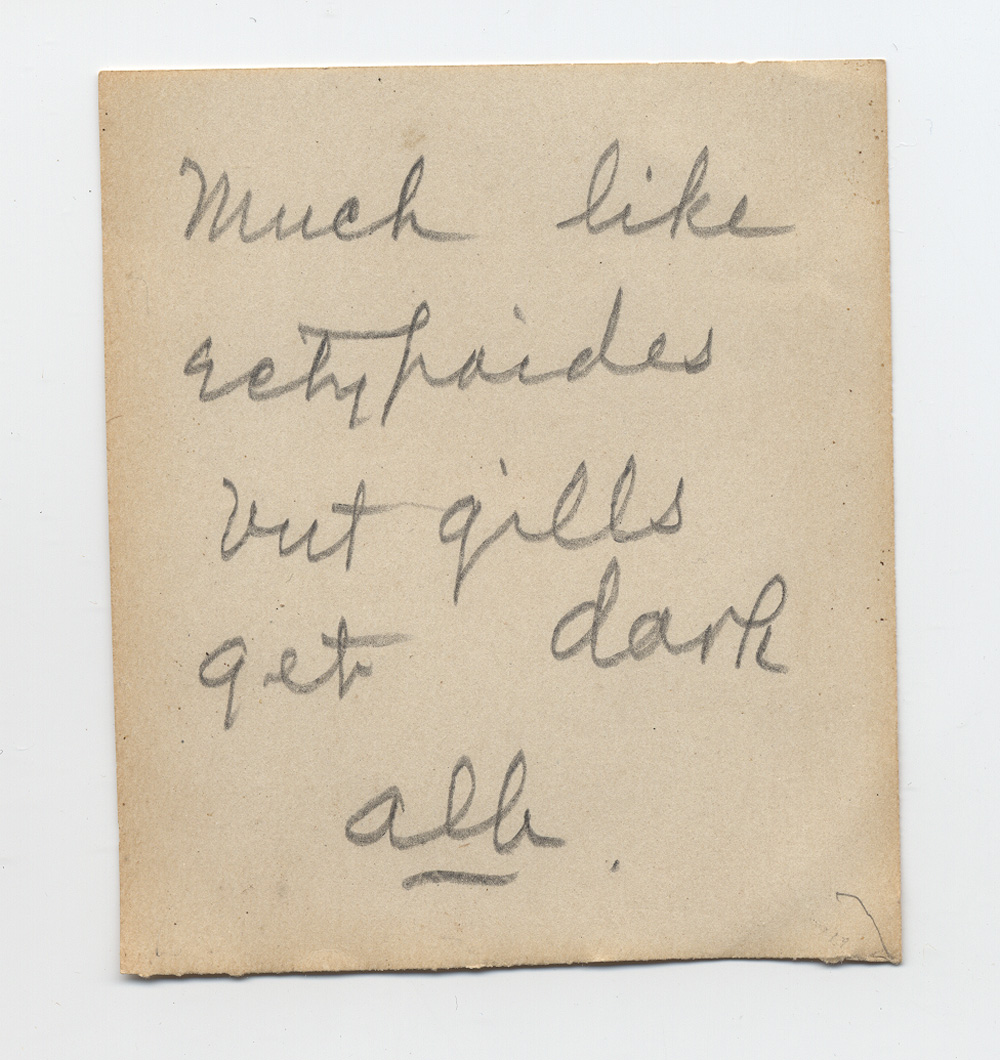 Much like
ectypoides
but gills
get dark